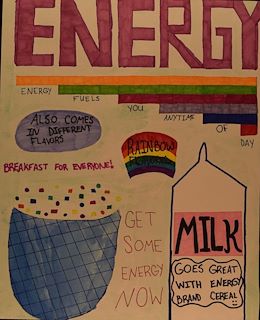 ENERGY
ENERGY
FUELS
YOU
ANYTIME
OF
DAY
ALSO COMES
IN DIFFERENT
FLAVORS
RAINBOW
BREAKFAST FOR EVERYONE!
GET
SOME
ENERGY
NOW
MILK
GOES GREAT
WITH ENERGY
BRAND CEREAL